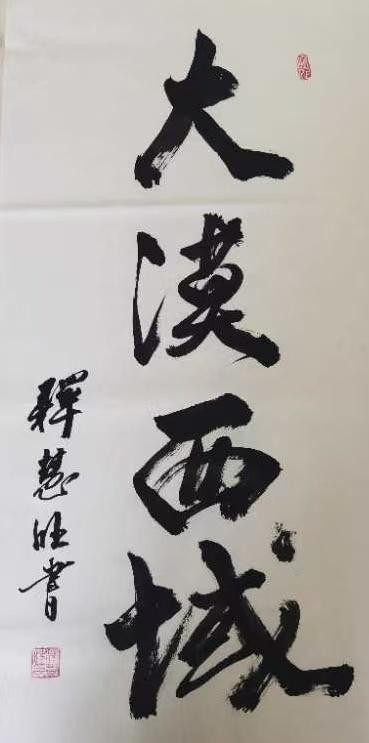 大漠西域
释慧旺書